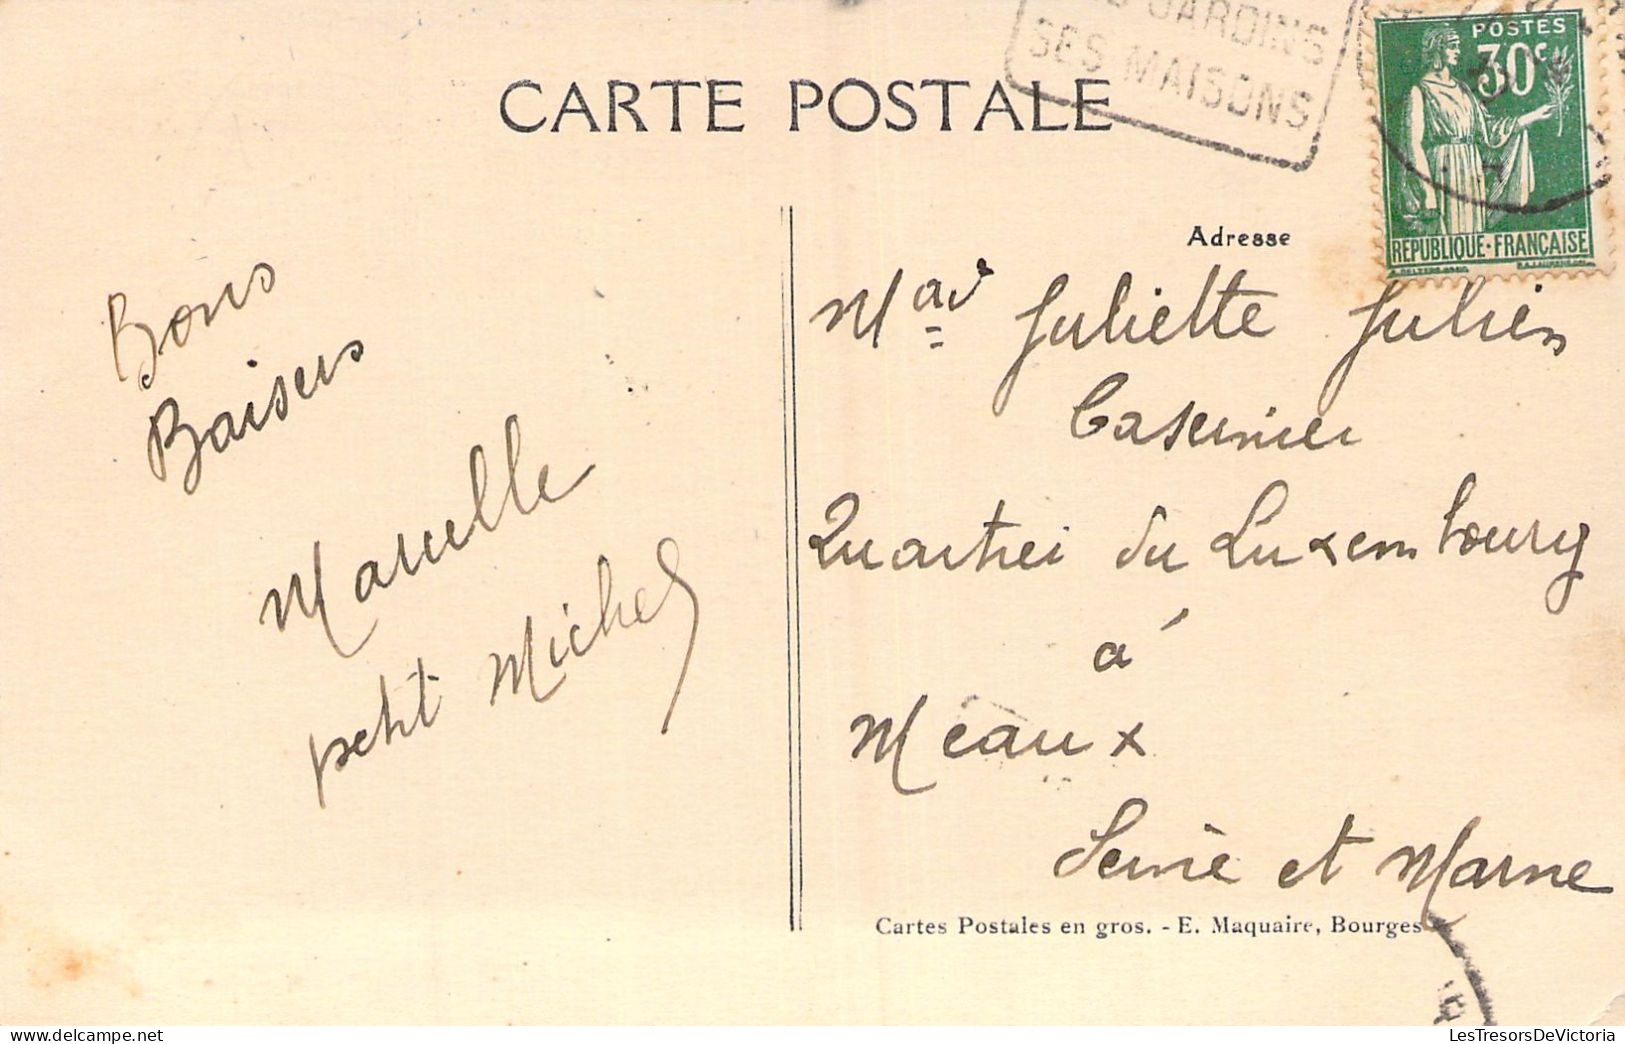 CARTE POSTALE
JARDINS
SES MAISONS
POSTES
30c
REPUBLIQUE·FRANÇAISE
Adresse
Bons
Baisers
Marcelle
petit Michel
Juliette Julien
Casernier
Quartier du Luxembourg
à
Meaux
Seine et Marne
Cartes Postales en gros. - E. Maquaire, Bourges
LesTresorsDeVictoria